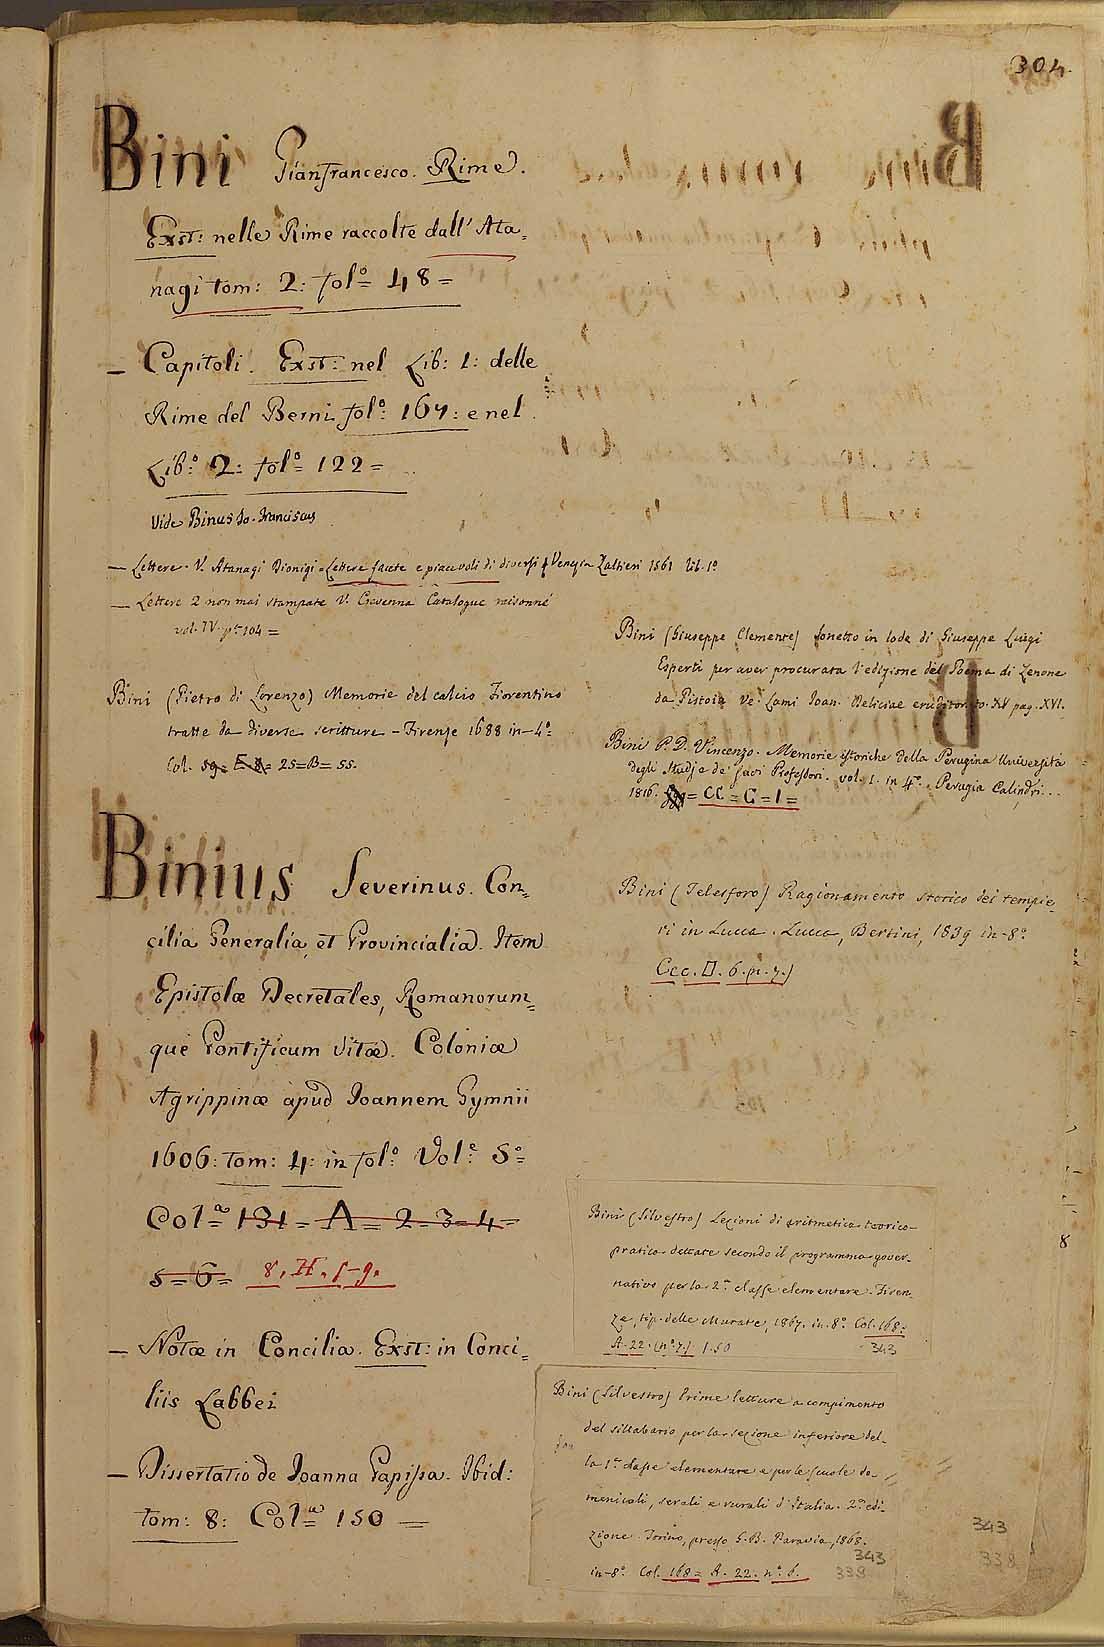 304.
Bini Gianfrancesco. Rime.
Exst: nelle Rime raccolte dall' Ata=
nagi tom: 2: fol:º 48=
— Capitoli. Exst: nel Lib: 1: delle
Rime del Berni fol:º 167: e nel
Lib:º 2: fol:º 122=
Vide Binus Jo. Franciscus
— Lettere. V. Atanagi Dionigi = Lettere facete e piacevoli di diversi Venezia Zaltieri 1561 lib. 1º
— Lettere 2 non mai stampate V. Crevenna Catalogue raisonné
vol. IV. pº 104=
Bini (Pietro di Lorenzo) Memorie del calcio Fiorentino
tratte da diverse scritture – Firenze 1688 in-4º
Col. 25=B=55.
Binius Severinus. Con=
cilia Generalia, et Provincialia. Item
Epistolæ Decretales, Romanorum=
que Pontificum vitæ. Coloniæ
Agrippinæ apud Joannem Gymnii
1606: tom: 4: in fol:º Vol:e 5:º
Col:a 131 = A = 2=3=4=
5=6= 8. H. 5-9.
— Notæ in Concilia. Exst: in Conci=
liis Labbei
— Dissertatio de Joanna Papissa. Ibid:
tom: 8: Col:a 150 —
Bini (Giuseppe Clemente) Sonetto in lode di Giuseppe Luigi
Esperti per aver procurata l'edizione del Poema di Zenone
da Pistoia Ve. Lami Joan. Deliciae eruditor. to. XV pag. XVI.
Bini P. D. Vincenzo. Memorie istoriche della Perugina Università
degli Studj e de' suoi Professori. vol. 1. in 4º. Perugia Calindri...
1816. = CC = G = 1=
Bini (Telesforo) Ragionamento storico dei tempie=
ri in Lucca. Lucca, Bertini, 1839 in-8º.
Ccc. D. 6. (n. 7.)
Bini (Silvestro) Lezioni di aritmetica teorico-
pratica dettate secondo il programma gover-
nativo per la 2ª classe elementare. Firen-
ze, tip. delle Murate, 1867. in-8º. Col. 168=
A. 22. (nº 7.) 1.50
343
Bini (Silvestro) Prime letture a compimento
del sillabario per la sezione inferiore del-
la 1ª classe elementare e per le scuole do-
menicali, serali e rurali d'Italia. 2ª edi-
zione. Torino, presso G. B. Paravia, 1868.
in-8º. Col. 168= A. 22. nº. 6.
343
338
343
338
8